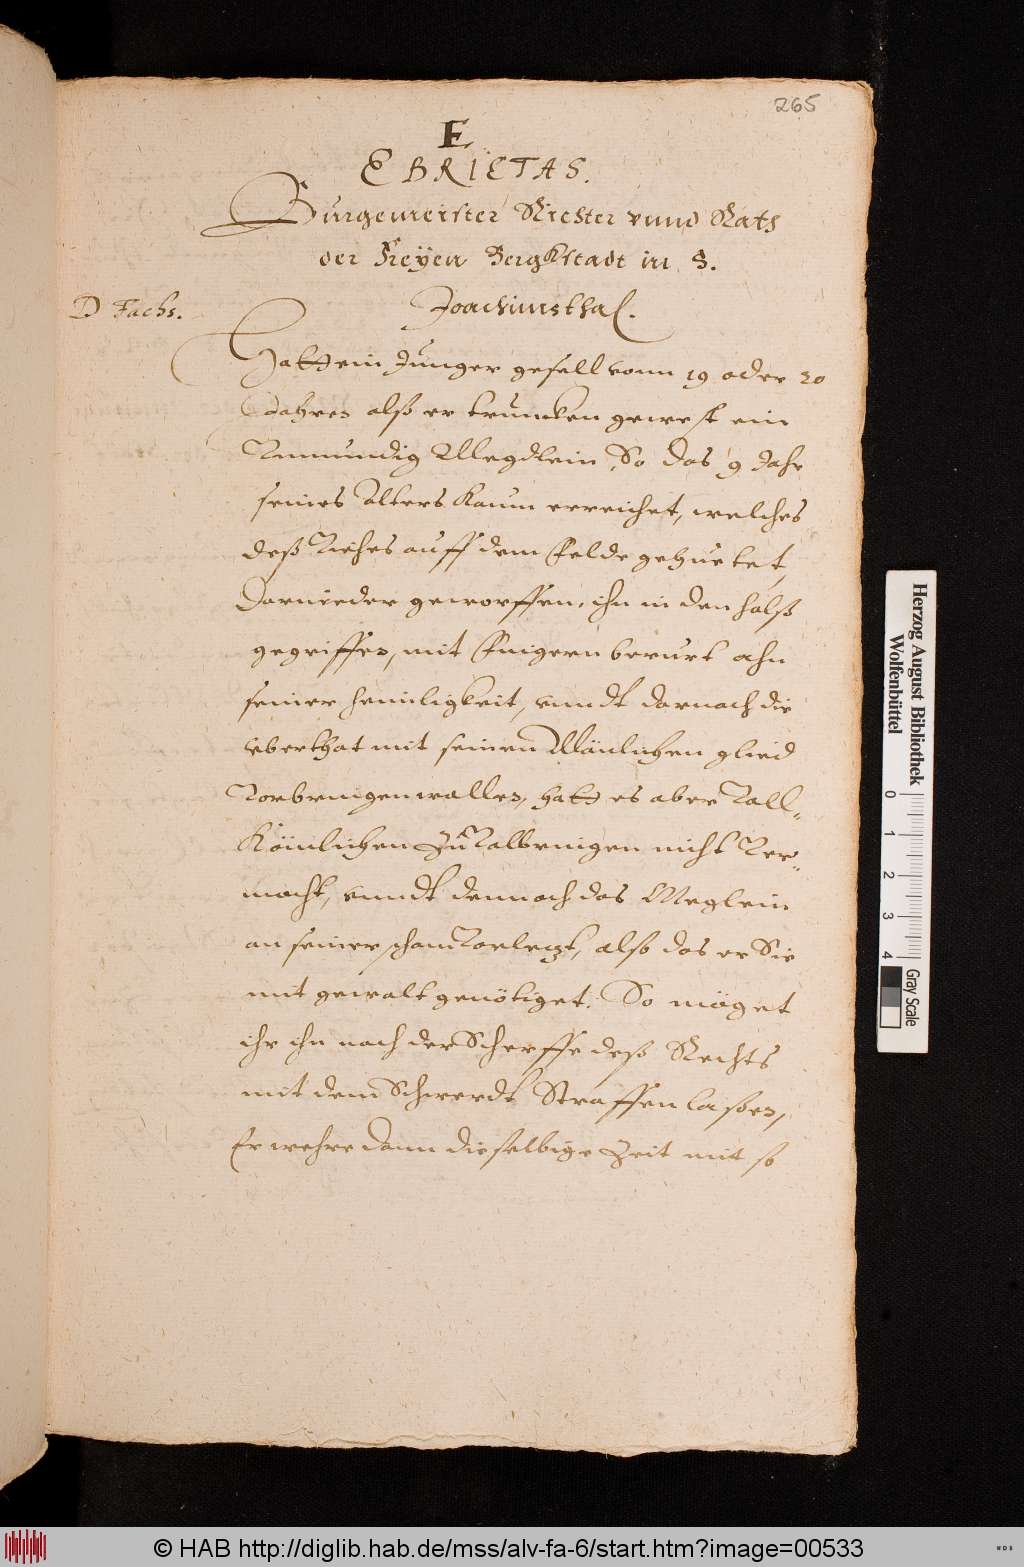 265
E
EBRIETAS.
Burgemeister Richter vnnd Raths
der Freyen Bergkstadt in S.
D Fachs.
Joachimsthal.
Hatt ein Junger gesell vonn 19 oder 20
Jahren alß er truncken gewest ein
Vnmundig Megdlein, So das 9 Jahr
seines Alters kaum erreichet, welches
deß Viehes auff dem Felde gehuetet,
Darnieder geworffen, ihn in den halß
gegriffen, mit Fingern berurt ahn
seiner heimligkeit, vnndt darnach die
vberthat mit seinen Mänlichen glied
Vorbringen wollen, hatt es aber Voll-
kömlichen Zu Volbringen nicht Ver-
mocht, vnndt dennoch das Meglein
an seiner scham Vorletzt, also das er Sie
mit gewalt genötiget: So möget
ihr ihn nach der Scherffe deß Rechts
mit dem Schwerdt Straffen laßen,
Er wehre dann dieselbige Zeit mit so
Herzog August Bibliothek
Wolfenbüttel
0 1 2 3 4
Gray Scale
© HAB http://diglib.hab.de/mss/alv-fa-6/start.htm?image=00533